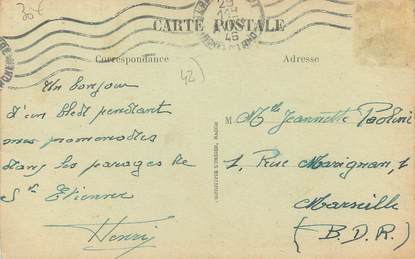 30f
CARTE POSTALE
Correspondance
Adresse
42
Un bonjour
d'un bled pendant
mes promenades
dans les parages de
St Etienne
Henry
M
Mlle Jeannette Paolini
1, Rue Marignan, 1
Marseille
(B.D.R.)